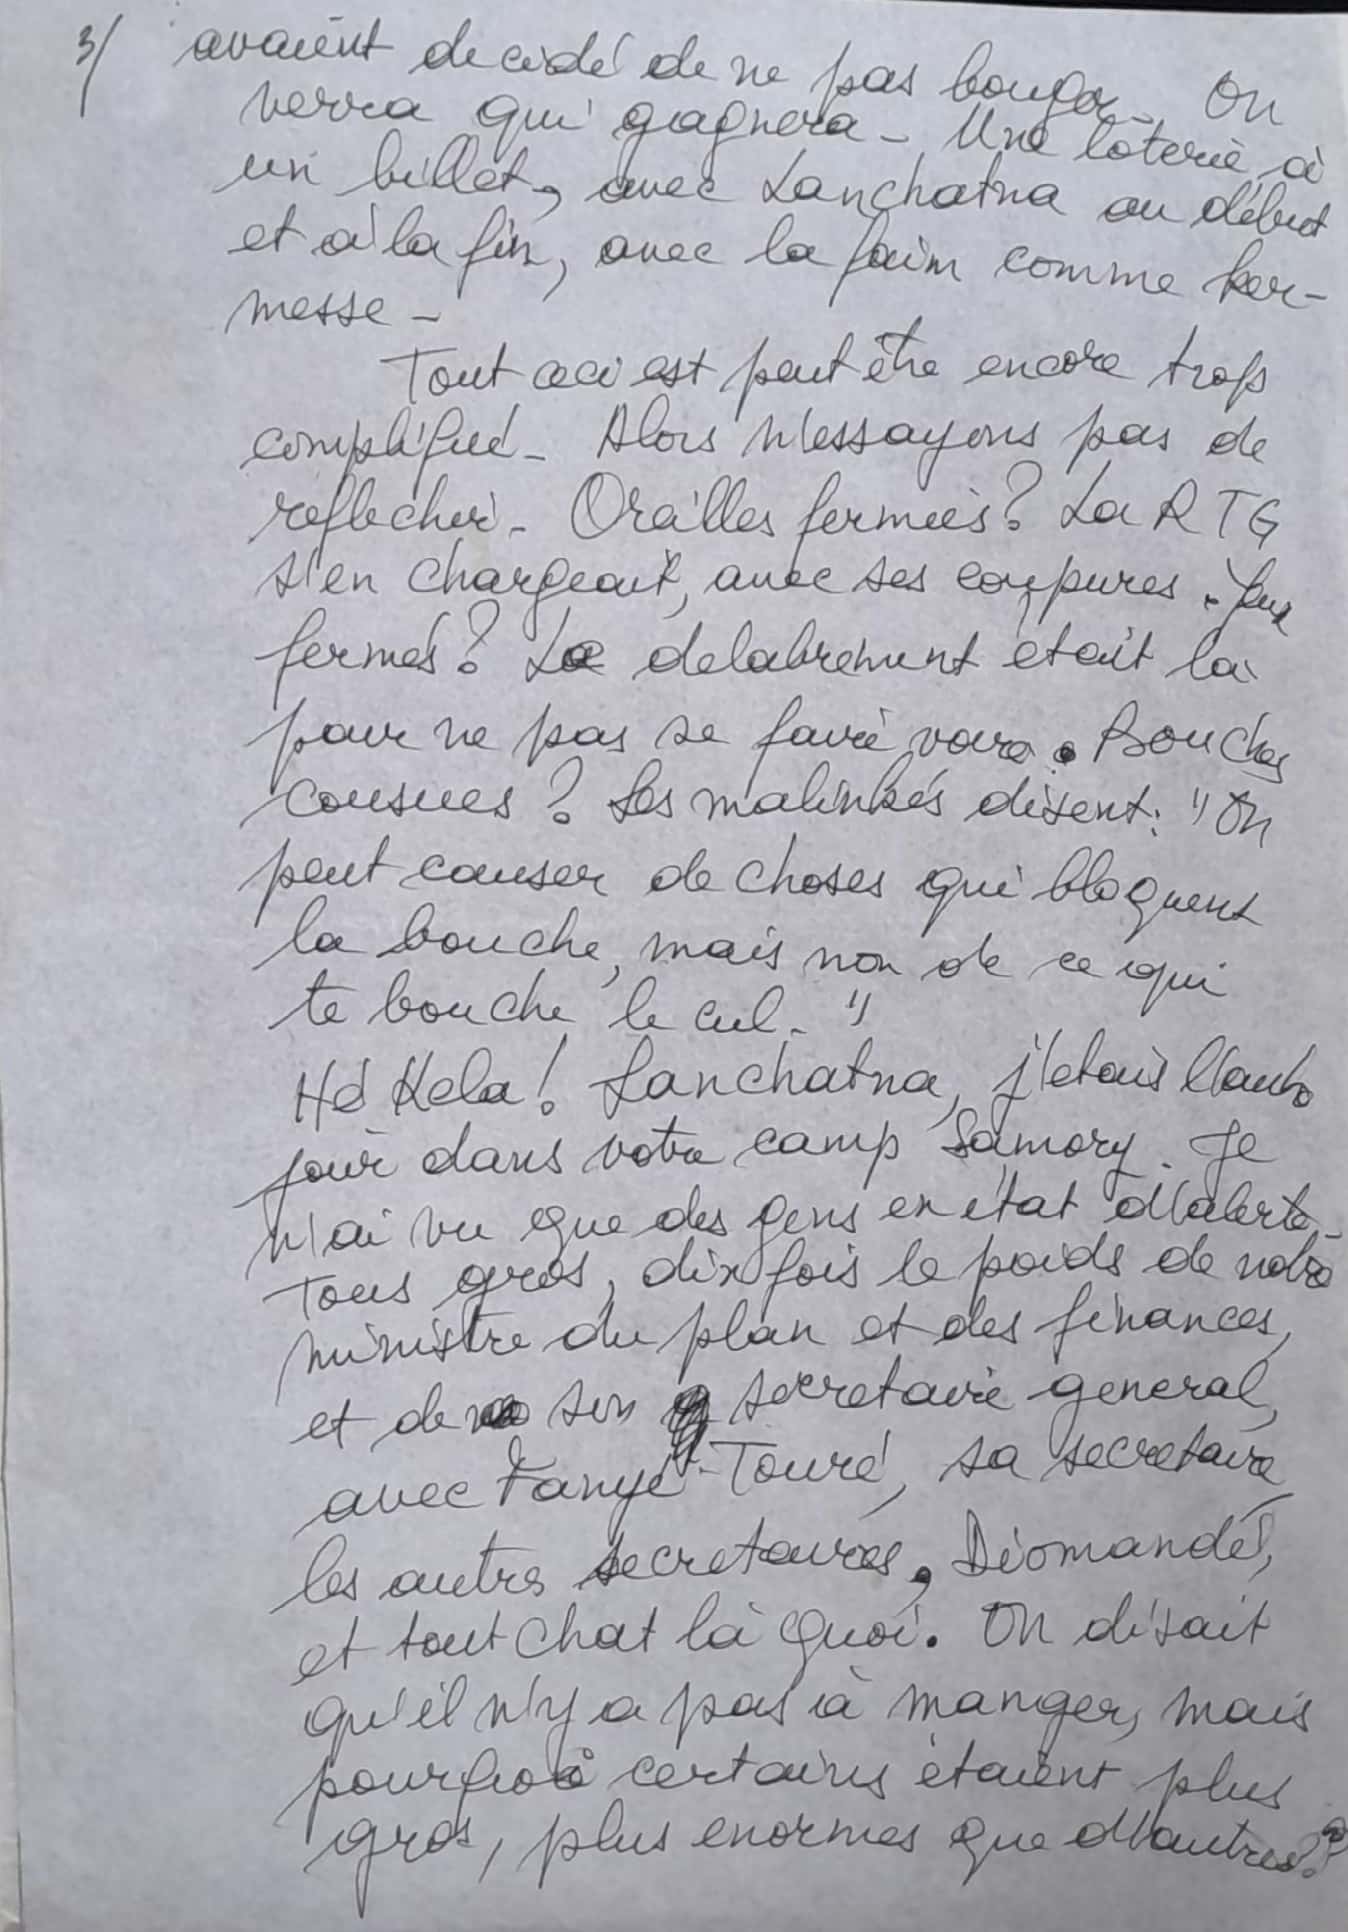 3/ avaient decidé de ne pas bouger - On
verra qui gagnera - Une loterie à
un billet, avec Lanchatna au début
et à la fin, avec la faim comme ker-
messe -
Tout ceci est peut être encore trop
compliqué - Alors n'essayons pas de
reflechir - Oreilles fermées? La RTG
s'en chargeait, avec ses coupures. Yeux
fermés? Le delabrement était là
pour ne pas se faire voir. Bouches
cousues? Les malinkés disent: "On
peut causer de choses qui bloquent
la bouche, mais non de ce qui
te bouche le cul."
Hé Kela! Lanchatna, j'etais l'autre
jour dans votre camp Samory. Je
n'ai vu que des gens en état d'alerte -
Tous gros, dix fois le poids de notre
ministre du plan et des finances,
et de son secretaire general,
avec Fanyé-Touré, sa secretaire
les autres secretaires, Diomandé,
et tout chat là quoi. On disait
qu'il n'y a pas à manger, mais
pourquoi certains étaient plus
gros, plus enormes que d'autres?